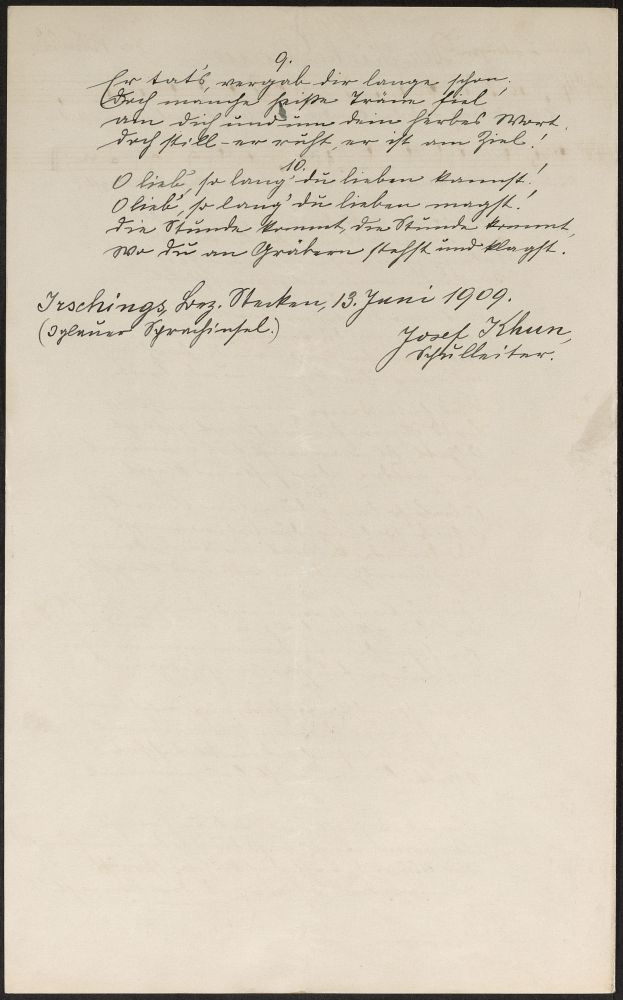 9.
Er tat's, vergab dir lange schon,
Doch manche heiße Träne fiel
um dich und um dein herbes Wort.
Doch still - er ruht, er ist am Ziel!
10.
O lieb', so lang' du lieben kannst!
O lieb', so lang' du lieben magst!
Die Stunde kommt, die Stunde kommt,
Wo du an Gräbern stehst und klagst.
Irschings, Bez. Stecken, 13. Juni 1909.
(Iglauer Sprachinsel.)
Josef Khun,
Schulleiter.